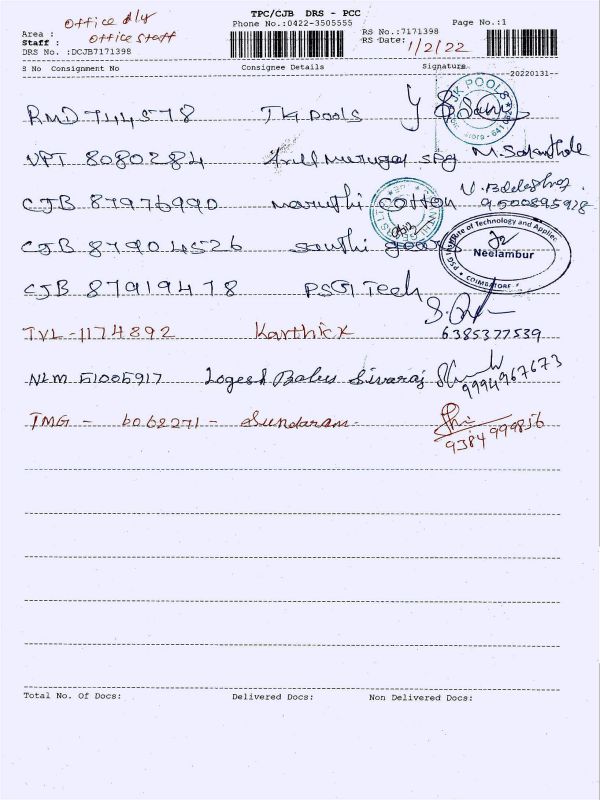 TPC/CJB DRS - PCC
Office dly
Phone No.:0422-3505555
Page No.:1
Area :
RS No.:7171398
Staff : Office Staff
RS Date: 1/2/22
DRS No. :DCJB7171398
S No Consignment No Consignee Details Signature
20220131
RMD 744578 JK Pools
JK POOLS
VPT 8080284 Arull Murugan Spg
CJB 87976990 Maruthi Cotton
9500895928
CJB 87904526 Santhi Gears
PSG Institute of Technology and Applied
Neelambur
COIMBATORE
CJB 87919478 PSG Tech
TVL - 1174892 Karthick 6385377539
NLM 51005917 Logesh Babu Sivaraj 9994967673
TMG - 6062271 - Sundaram
9384999856
Total No. Of Docs: Delivered Docs: Non Delivered Docs: